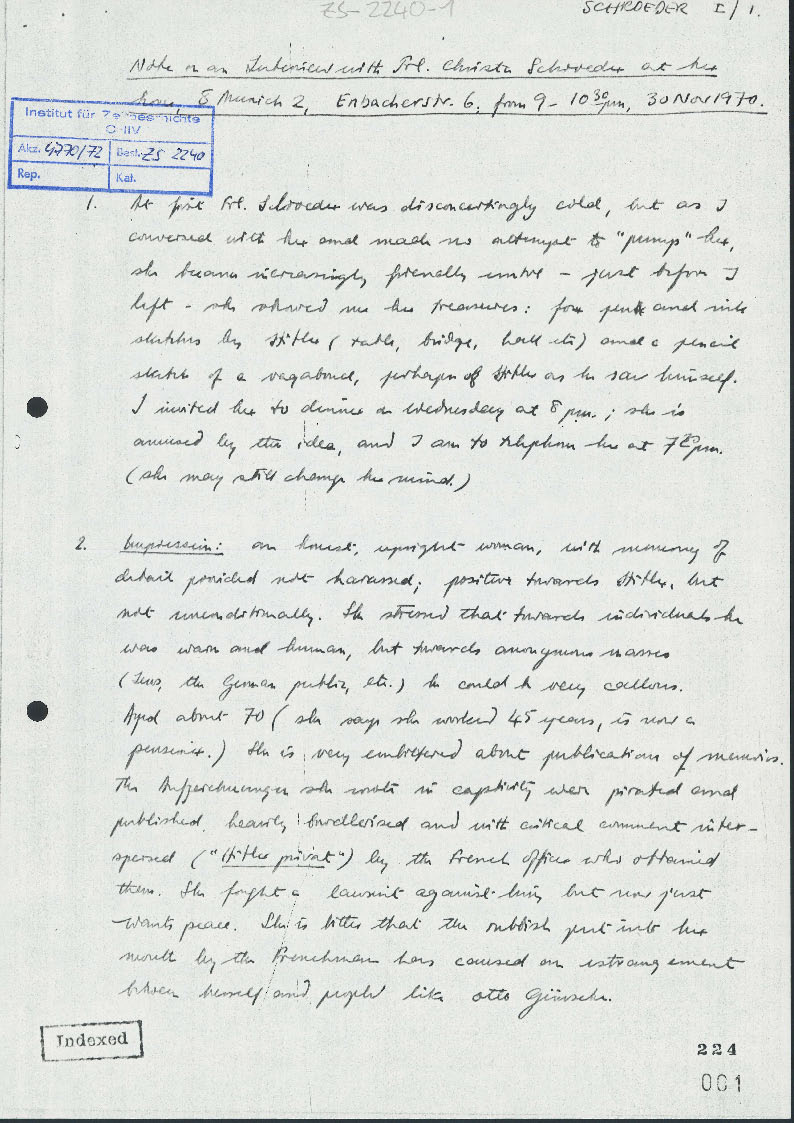 ZS-2240-1
SCHROEDER I/1.
Note on an Interview with Frl. Christa Schroeder at her
home, 8 Munich 2, Enbacherstr. 6, from 9 - 10³⁰ pm, 30 Nov 1970.
Institut für Zeitgeschichte
Akz. 4770/72 Best. ZS 2240
Rep. Kat.
1. At first Frl. Schroeder was disconcertingly cold, but as I
conversed with her and made no attempt to "pump" her,
she became increasingly friendly until - just before I
left - she showed me her treasures: four pen and ink
sketches by Hitler (table, bridge, hall etc) and a pencil
sketch of a vagabond, perhaps of Hitler as he saw himself.
I invited her to dinner on Wednesday at 8 pm.; she is
amused by the idea, and I am to telephone her at 7 pm.
(she may still change her mind.)
2. Impression: an honest, upright woman, with memory of
detail provided not harassed; positive towards Hitler, but
not unconditionally. She stressed that towards individuals he
was warm and human, but towards anonymous masses
(Jews, the German public, etc.) he could be very callous.
Aged about 70 (she says she worked 45 years, is now a
pensioner.) She is very embittered about publication of memoirs.
The Aufzeichnungen she wrote in captivity were pirated and
published, heavily bowdlerised and with critical comment inter-
spersed ("Hitler privat") by the French officer who obtained
them. She fought a lawsuit against him but now just
wants peace. She is bitter that the rubbish put into her
mouth by the Frenchman has caused an estrangement
between herself and people like Otto Günsche.
Indexed
224
001